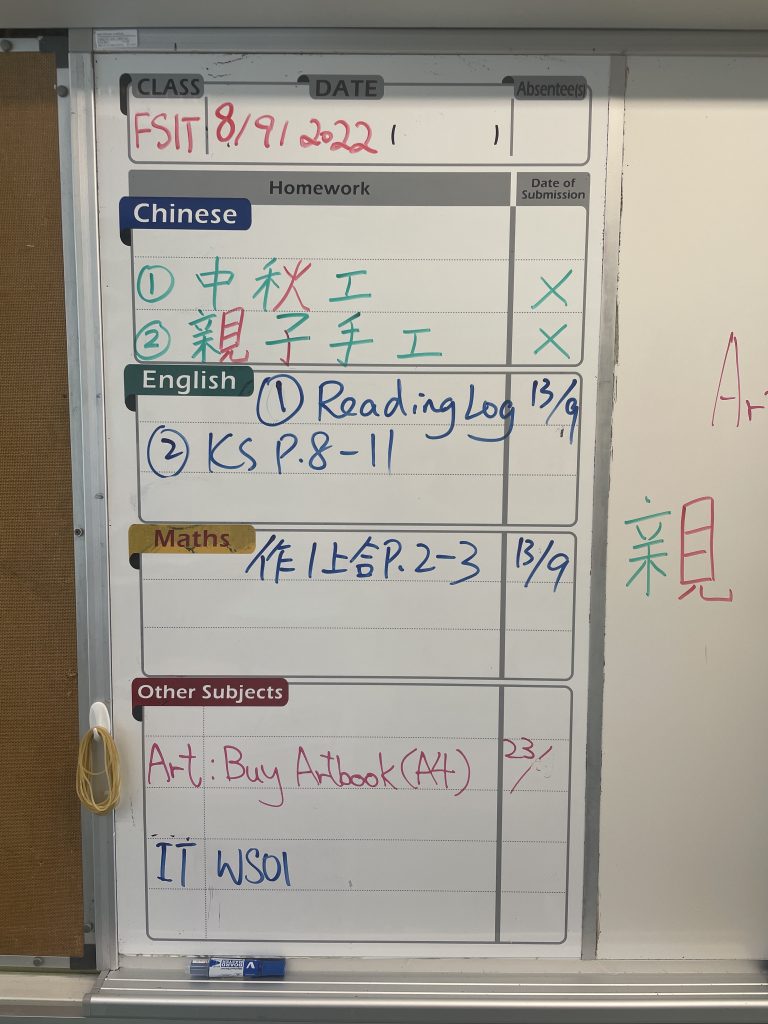 CLASS DATE Absentee(s)
FSIT 8/9/2022 ( )
Homework Date of Submission
Chinese
① 中秋工 ×
② 親子手工 ×
English
① Reading Log 13/9
② KS P.8-11
Maths
作1上合P.2-3 13/9
Other Subjects
Art: Buy Artbook (A4) 23/
IT WS01
親